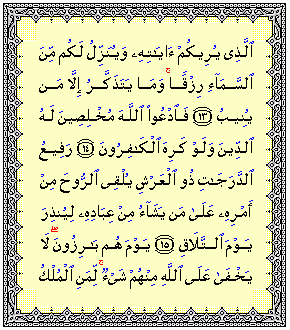 ٱلَّذِى يُرِيكُمْ ءَايَـٰتِهِۦ وَيُنَزِّلُ لَكُم مِّنَ
ٱلسَّمَآءِ رِزْقًا ۚ وَمَا يَتَذَكَّرُ إِلَّا مَن
يُنِيبُ ١٣ فَٱدْعُوا۟ ٱللَّهَ مُخْلِصِينَ لَهُ
ٱلدِّينَ وَلَوْ كَرِهَ ٱلْكَـٰفِرُونَ ١٤ رَفِيعُ
ٱلدَّرَجَـٰتِ ذُو ٱلْعَرْشِ يُلْقِى ٱلرُّوحَ مِنْ
أَمْرِهِۦ عَلَىٰ مَن يَشَآءُ مِنْ عِبَادِهِۦ لِيُنذِرَ
يَوْمَ ٱلتَّلَاقِ ١٥ يَوْمَ هُم بَـٰرِزُونَ ۖ لَا
يَخْفَىٰ عَلَى ٱللَّهِ مِنْهُمْ شَىْءٌ ۚ لِّمَنِ ٱلْمُلْكُ